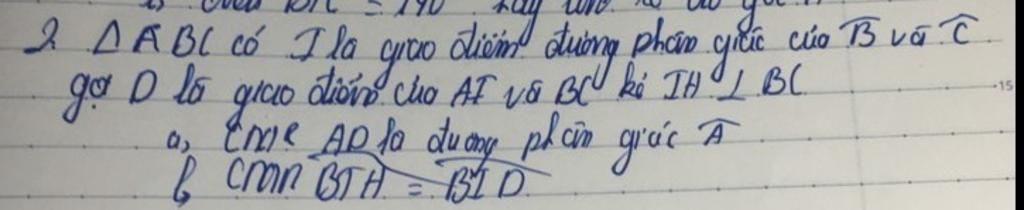 2. Δ ABC có I là giao điểm đường phân giác của B̂ và Ĉ
gọi D là giao điểm của AI và BC kẻ IH ⊥ BC
a, CMR AD là đường phân giác Â
b CMR BIH = BID